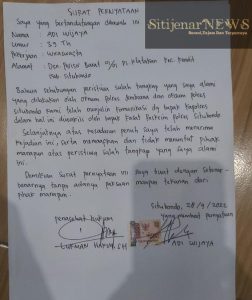 Sitijenar NEWS
SURAT PERNYATAAN
Saya yang bertandatangan dibawah ini
Nama : ADI WIJAYA
Umur : 39 Th
Pekerjaan : WIRASWASTA
Alamat : Dsn. Pesisir Barat 5/6, Ds Kletakan Kec.
Kab Situbondo
Bahwa sehubungan peristiwa salah tangkap yang saya alami
yang dilakukan oleh oknum Polres Jembrana dan oknum polres
Situbondo kami telah menjalin komunikasi dg bapak Kapolres
dalam hal ini diwakili oleh bapak Kasat Reskrim Polres Situbondo
Selanjutnya atas kesadaran penuh saya telah menerima
kejadian ini, serta memaafkan dan tidak menuntut pihak
manapun atas peristiwa salah tangkap yang saya alami
ini.
Demikian Surat pernyataan ini saya buat dengan Sebenar-
benarnya tanpa adanya paksaan maupun tekanan dari
pihak manapun.
Situbondo, 28/9/2022
penasehat hukum
yang membuat pernyataan
ADI WIJAYA